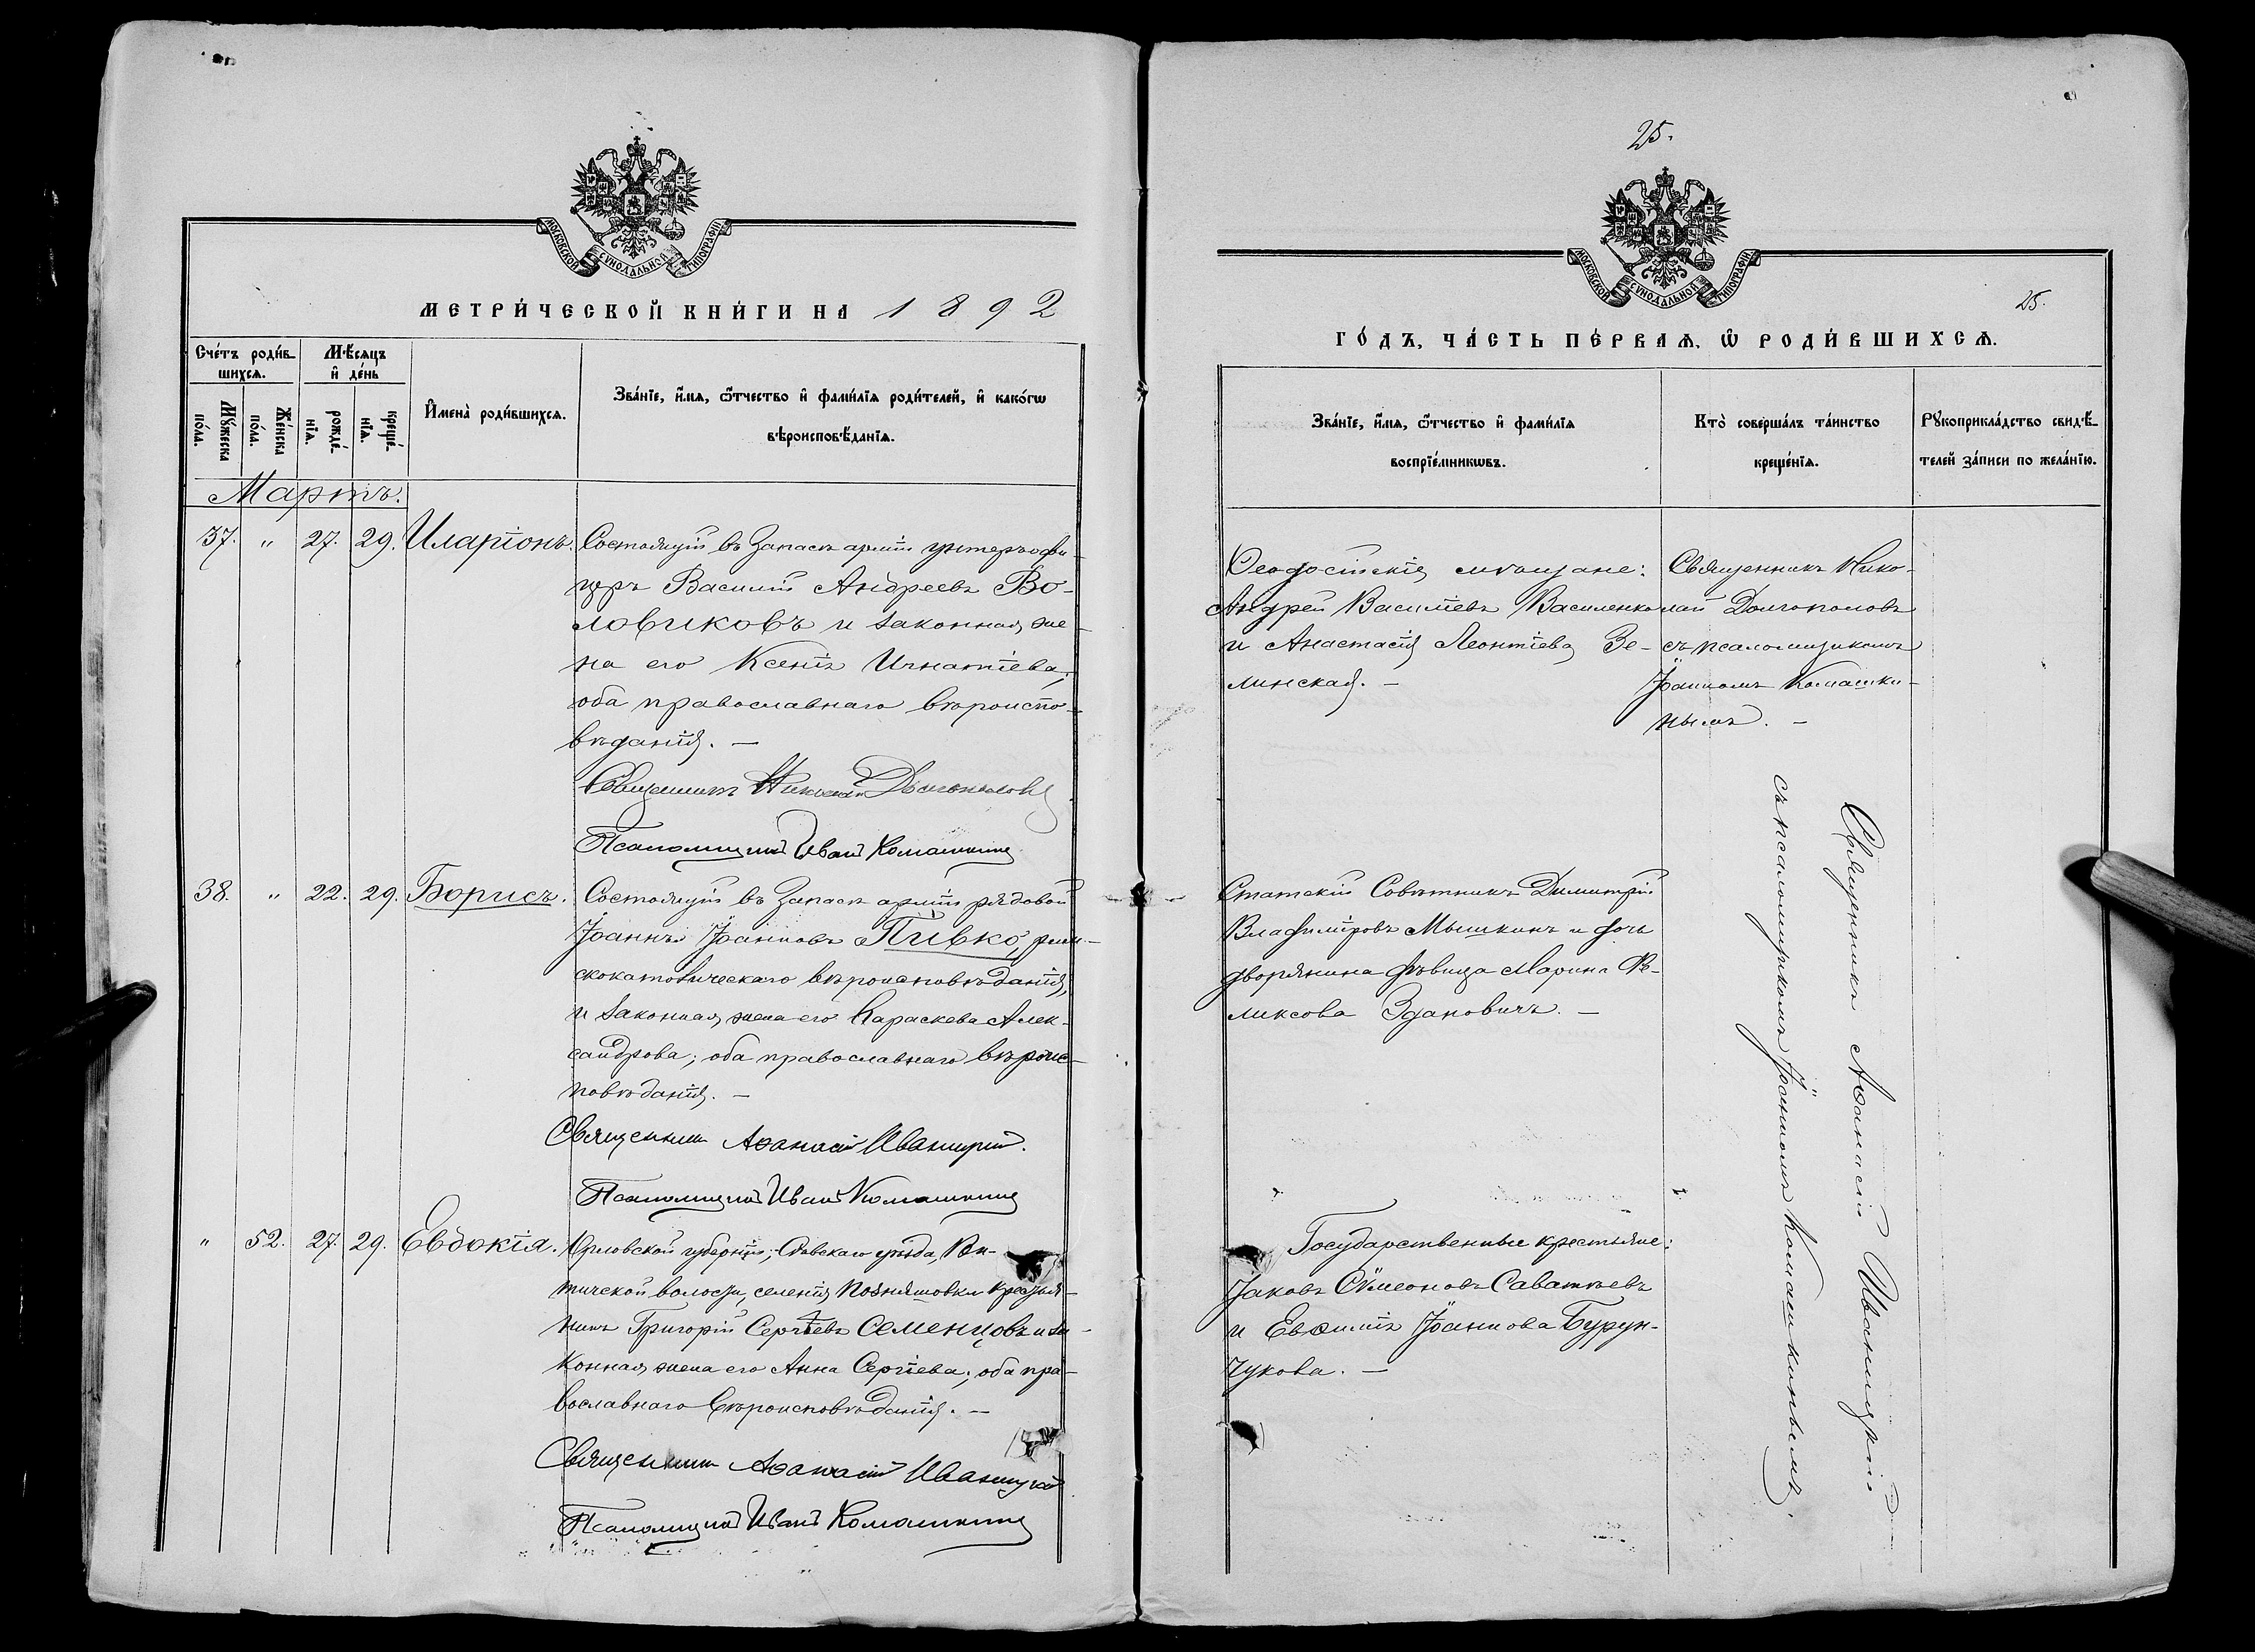 МОСКОВСКОЙ СУНОДАЛЬНОЙ ТИПОГРАФІИ
МЕТРИ́ЧЕСКОЙ КНИ́ГИ НА 1892
Сче́тъ роди́в-
шихсѧ.
Мѣ́сѧцъ
и҆ де́нь
Мꙋ́жеска
по́ла.
Же́нска
по́ла.
рожде́-
нїѧ.
креще́-
нїѧ.
И҆мена̀ роди́вшихсѧ.
Зва́нїе, и҆́мѧ, ѻ҆́тчество и҆ фами́лїѧ роди́телей, и҆ како́гѡ
вѣроисповѣ́данїѧ.
Мартъ.
37. " 27. 29. Иларіонъ.
Состоящій въ запасѣ арміи унтеръ-офи-
церъ Василій Андреевъ Во-
ловиковъ и законная же-
на его Ксенія Игнатіева,
оба православнаго вѣроиспо-
вѣданія. —
Священникъ Николай Долгополовъ
Псаломщикъ Иванъ Комашкинъ
38. " 22. 29. Борисъ.
Состоящій въ запасѣ арміи рядовой
Іоаннъ Іоанновъ Пивко, рим-
скокатолическаго вѣроисповѣданія,
и законная жена его Параскева Алек-
сандрова; оба православнаго вѣроис-
повѣданія. —
Священникъ Аѳанасій Иваницкій.
Псаломщикъ Иванъ Комашкинъ
" 52. 27. 29. Евдокія.
Орловской губерніи, Сѣвскаго уѣзда,
тичской волости, селенія Позняшовки крестья-
нинъ Григорій Сергѣевъ Семенцовъ и за-
конная жена его Анна Сергіева; оба пра-
вославнаго вѣроисповѣданія. —
Священникъ Аѳанасій Иваницкій
Псаломщикъ Иванъ Комашкинъ
25.
МОСКОВСКОЙ СУНОДАЛЬНОЙ ТИПОГРАФІИ
25.
ГО́ДЪ, ЧА́СТЬ ПЕ́РВАѦ, Ѡ҆ РОДИ́ВШИХСѦ.
Зва́нїе, и҆́мѧ, ѻ҆́тчество и҆ фами́лїѧ
воспрїе́мникѡвъ.
Кто̀ соверша́лъ та́инство
креще́нїѧ.
Рꙋкоприкла́дство свидѣ́-
телей за́писи по жела́нїю.
Ѳеодосійскіе мѣщане:
Андрей Васильевъ Василенко
и Анастасія Леонтіева Зе-
линская. —
Священникъ Нико-
лай Долгополовъ
съ псаломщикомъ
Іоанномъ Комашки-
нымъ. —
Статскій Совѣтникъ Димитрій
Владиміровъ Мышкинъ и дочь
дворянина дѣвица Марина Фе-
ликсова Здановичъ. —
Государственные крестьяне:
Іаковъ Сѵмеоновъ Саватѣевъ
и Евѳимія Іоаннова Бурун-
чукова. —
Священникъ Аѳанасій Иваницкій
съ псаломщикомъ Іоанномъ Комашкинымъ.